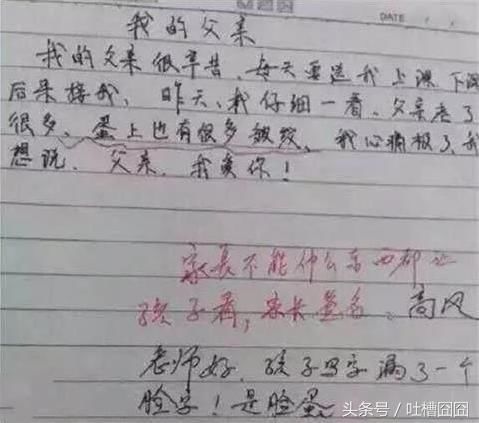 DATE
我的父亲
我的父亲很辛苦、每天要送我上课、下课
后来接我、昨天、我仔细一看、父亲老了
很多、蛋上也有很多皱纹、我心痛极了、我
想说、父亲、我爱你！
家长不能什么东西都让
孩子看，家长签名、高风
老师好、孩子写字漏了一个
脸字！是脸蛋
头条号／吐槽囧囧